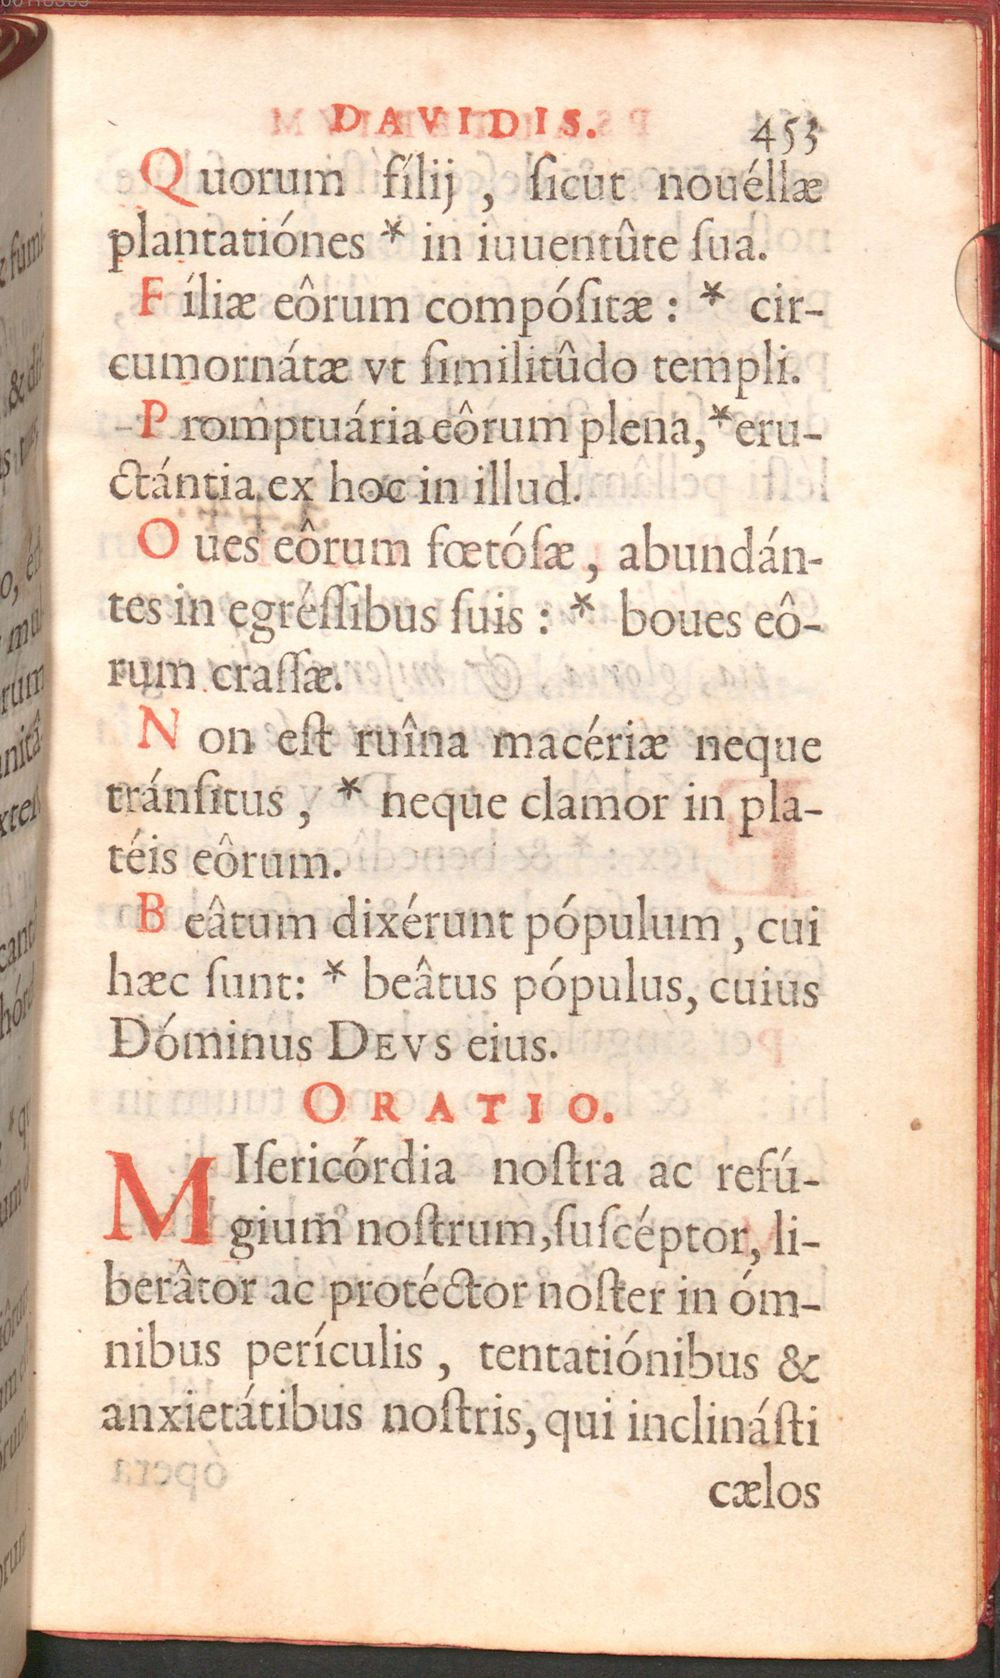 DAVIDIS. 453
Quorum fílij, ſicut nouéllæ
plantatiónes * in iuuentûte ſua.
Fíliæ eôrum compóſitæ : * cir-
cumornátæ vt ſimilitûdo templi.
Promptuária eôrum plena, * eru-
ctántia ex hoc in illud.
Oues eôrum fœtóſæ, abundán-
tes in egréſſibus ſuis : * boues eô-
rum craſſæ.
Non eſt ruîna macériæ neque
tránſitus, * neque clamor in pla-
téis eôrum.
Beâtum dixérunt pópulum, cui
hæc ſunt: * beâtus pópulus, cuius
Dóminus DEVS eius.
ORATIO.
MIſericórdia noſtra ac refú-
gium noſtrum, ſuſcéptor, li-
berâtor ac protéctor noſter in óm-
nibus perículis, tentatiónibus &
anxietátibus noſtris, qui inclináſti
cælos